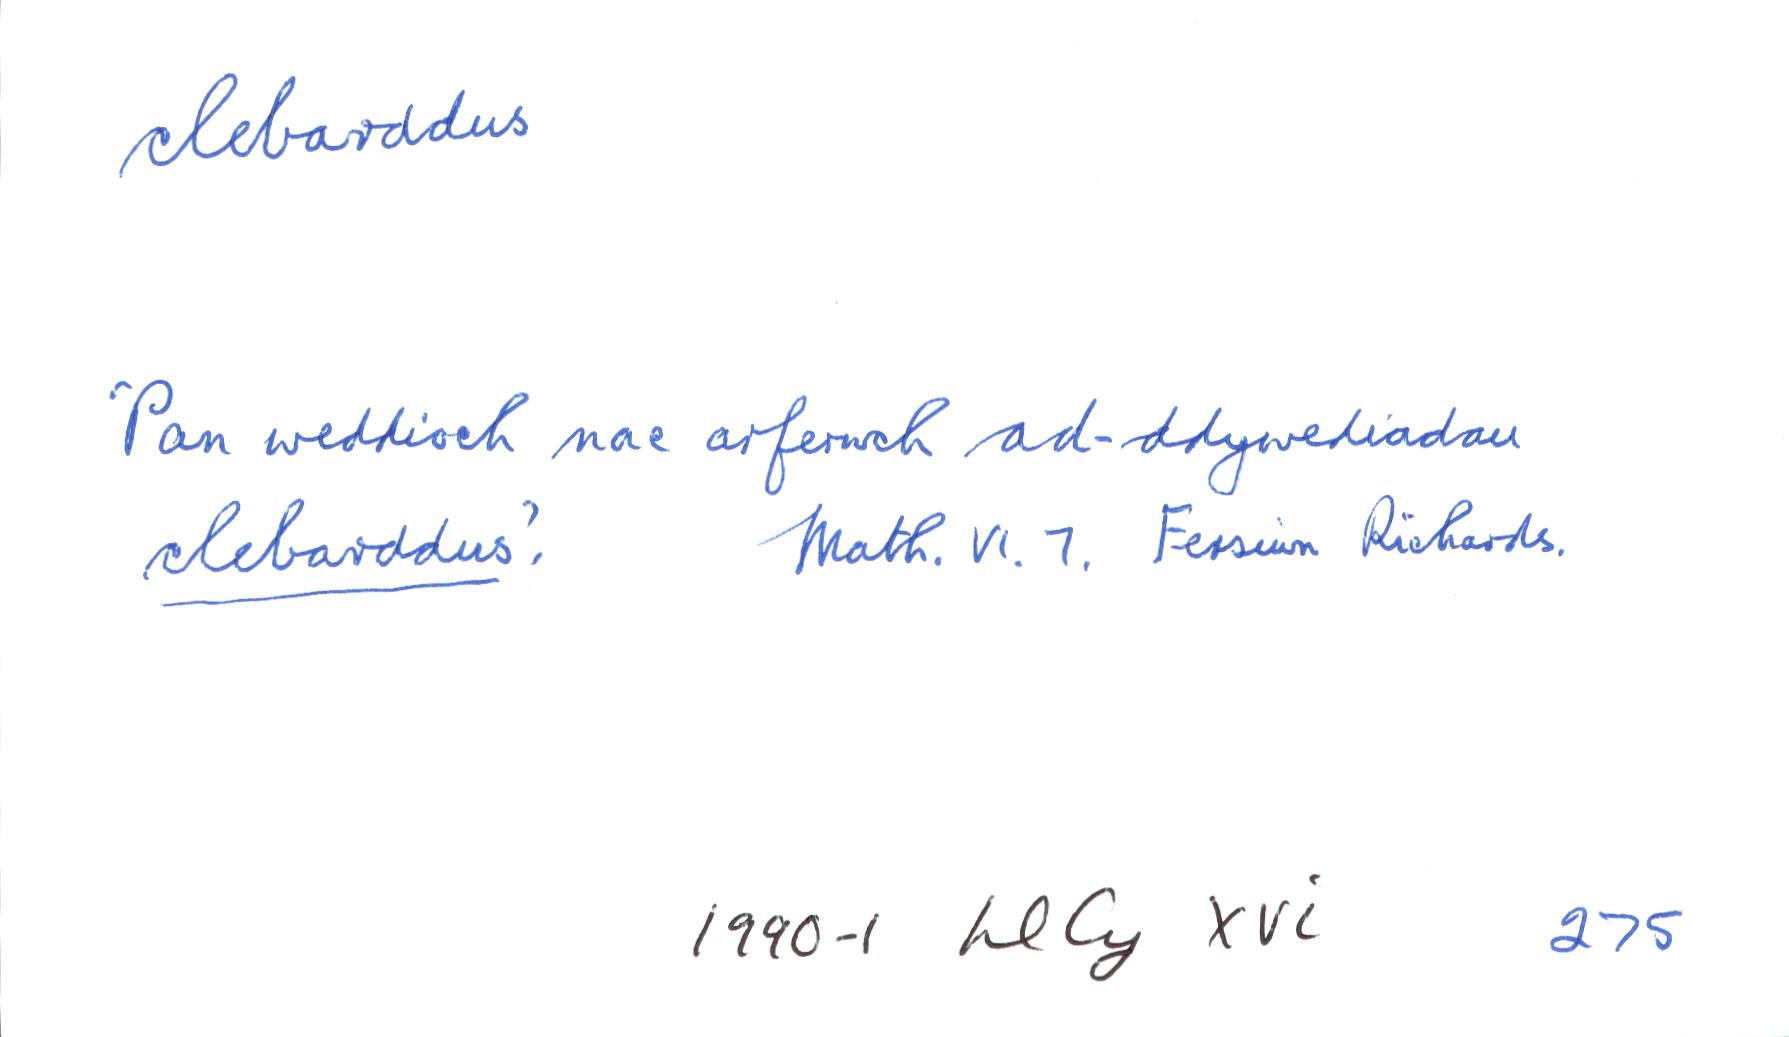 clebarddus
"Pan weddïoch nac arferwch ad-ddywediadau
clebarddus'.  Math. VI. 7.  Fersiwn Richards.
1990-1  LlCy  XVi  275